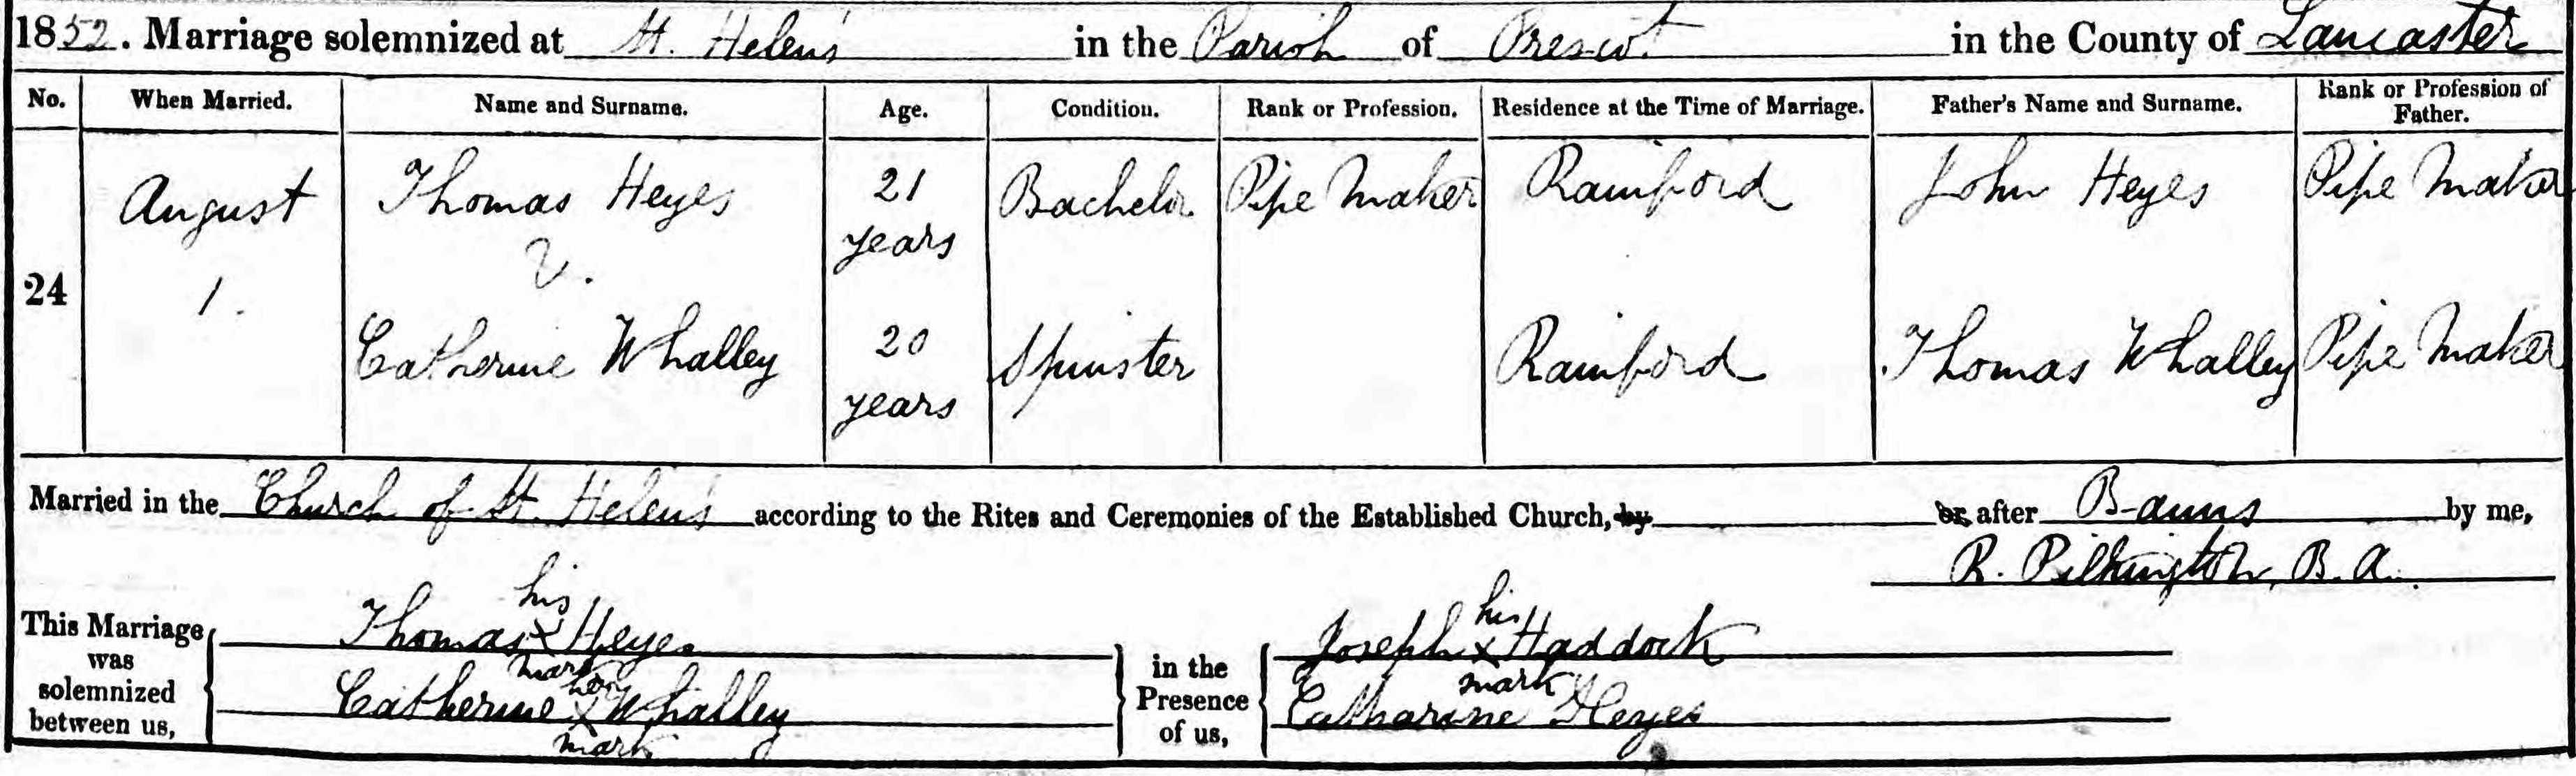 1852. Marriage solemnized at St. Helen's in the Parish of Prescot in the County of Lancaster
No. When Married. Name and Surname. Age. Condition. Rank or Profession. Residence at the Time of Marriage. Father's Name and Surname. Rank or Profession of Father.
24 August 1. Thomas Heyes 21 years Bachelor Pipe Maker Rainford John Heyes Pipe Maker
Catherine Whalley 20 years Spinster Rainford Thomas Whalley Pipe Maker
Married in the Church of St. Helen's according to the Rites and Ceremonies of the Established Church, by or after Banns by me,
R. Pilkington, B.A.
This Marriage was solemnized between us,
Thomas his x mark Heyes
Catherine her x mark Whalley
in the Presence of us,
Joseph his x mark Haddock
Catharine Heyes